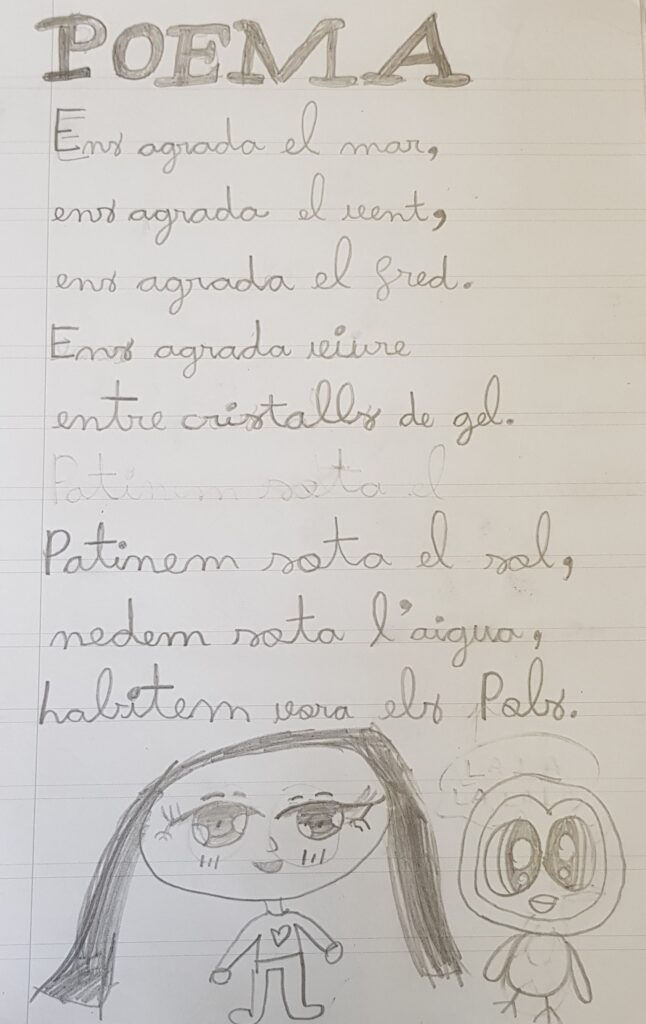 POEMA
Ens agrada el mar,
ens agrada el vent,
ens agrada el fred.
Ens agrada viure
entre cristalls de gel.
Patinem sota el
Patinem sota el sol,
nedem sota l'aigua,
habitem vora els Pols.
LA LA
LA